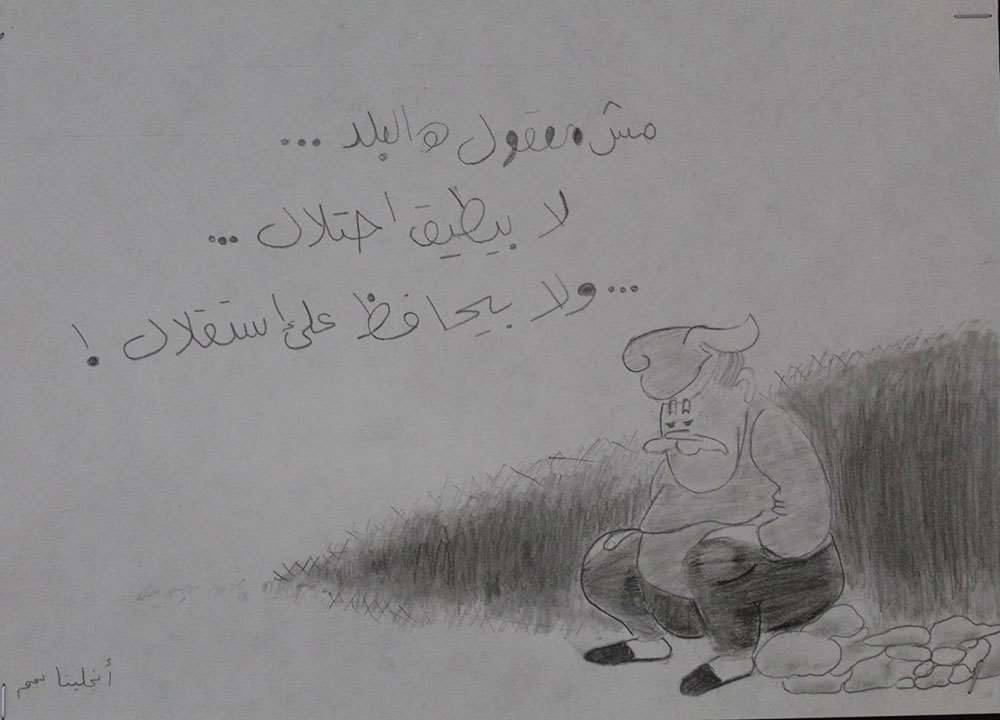 مش معقول هالبلد ...
لا بيطيق احتلال ...
... ولا بيحافظ على إستقلال !
أنجلينا سمم